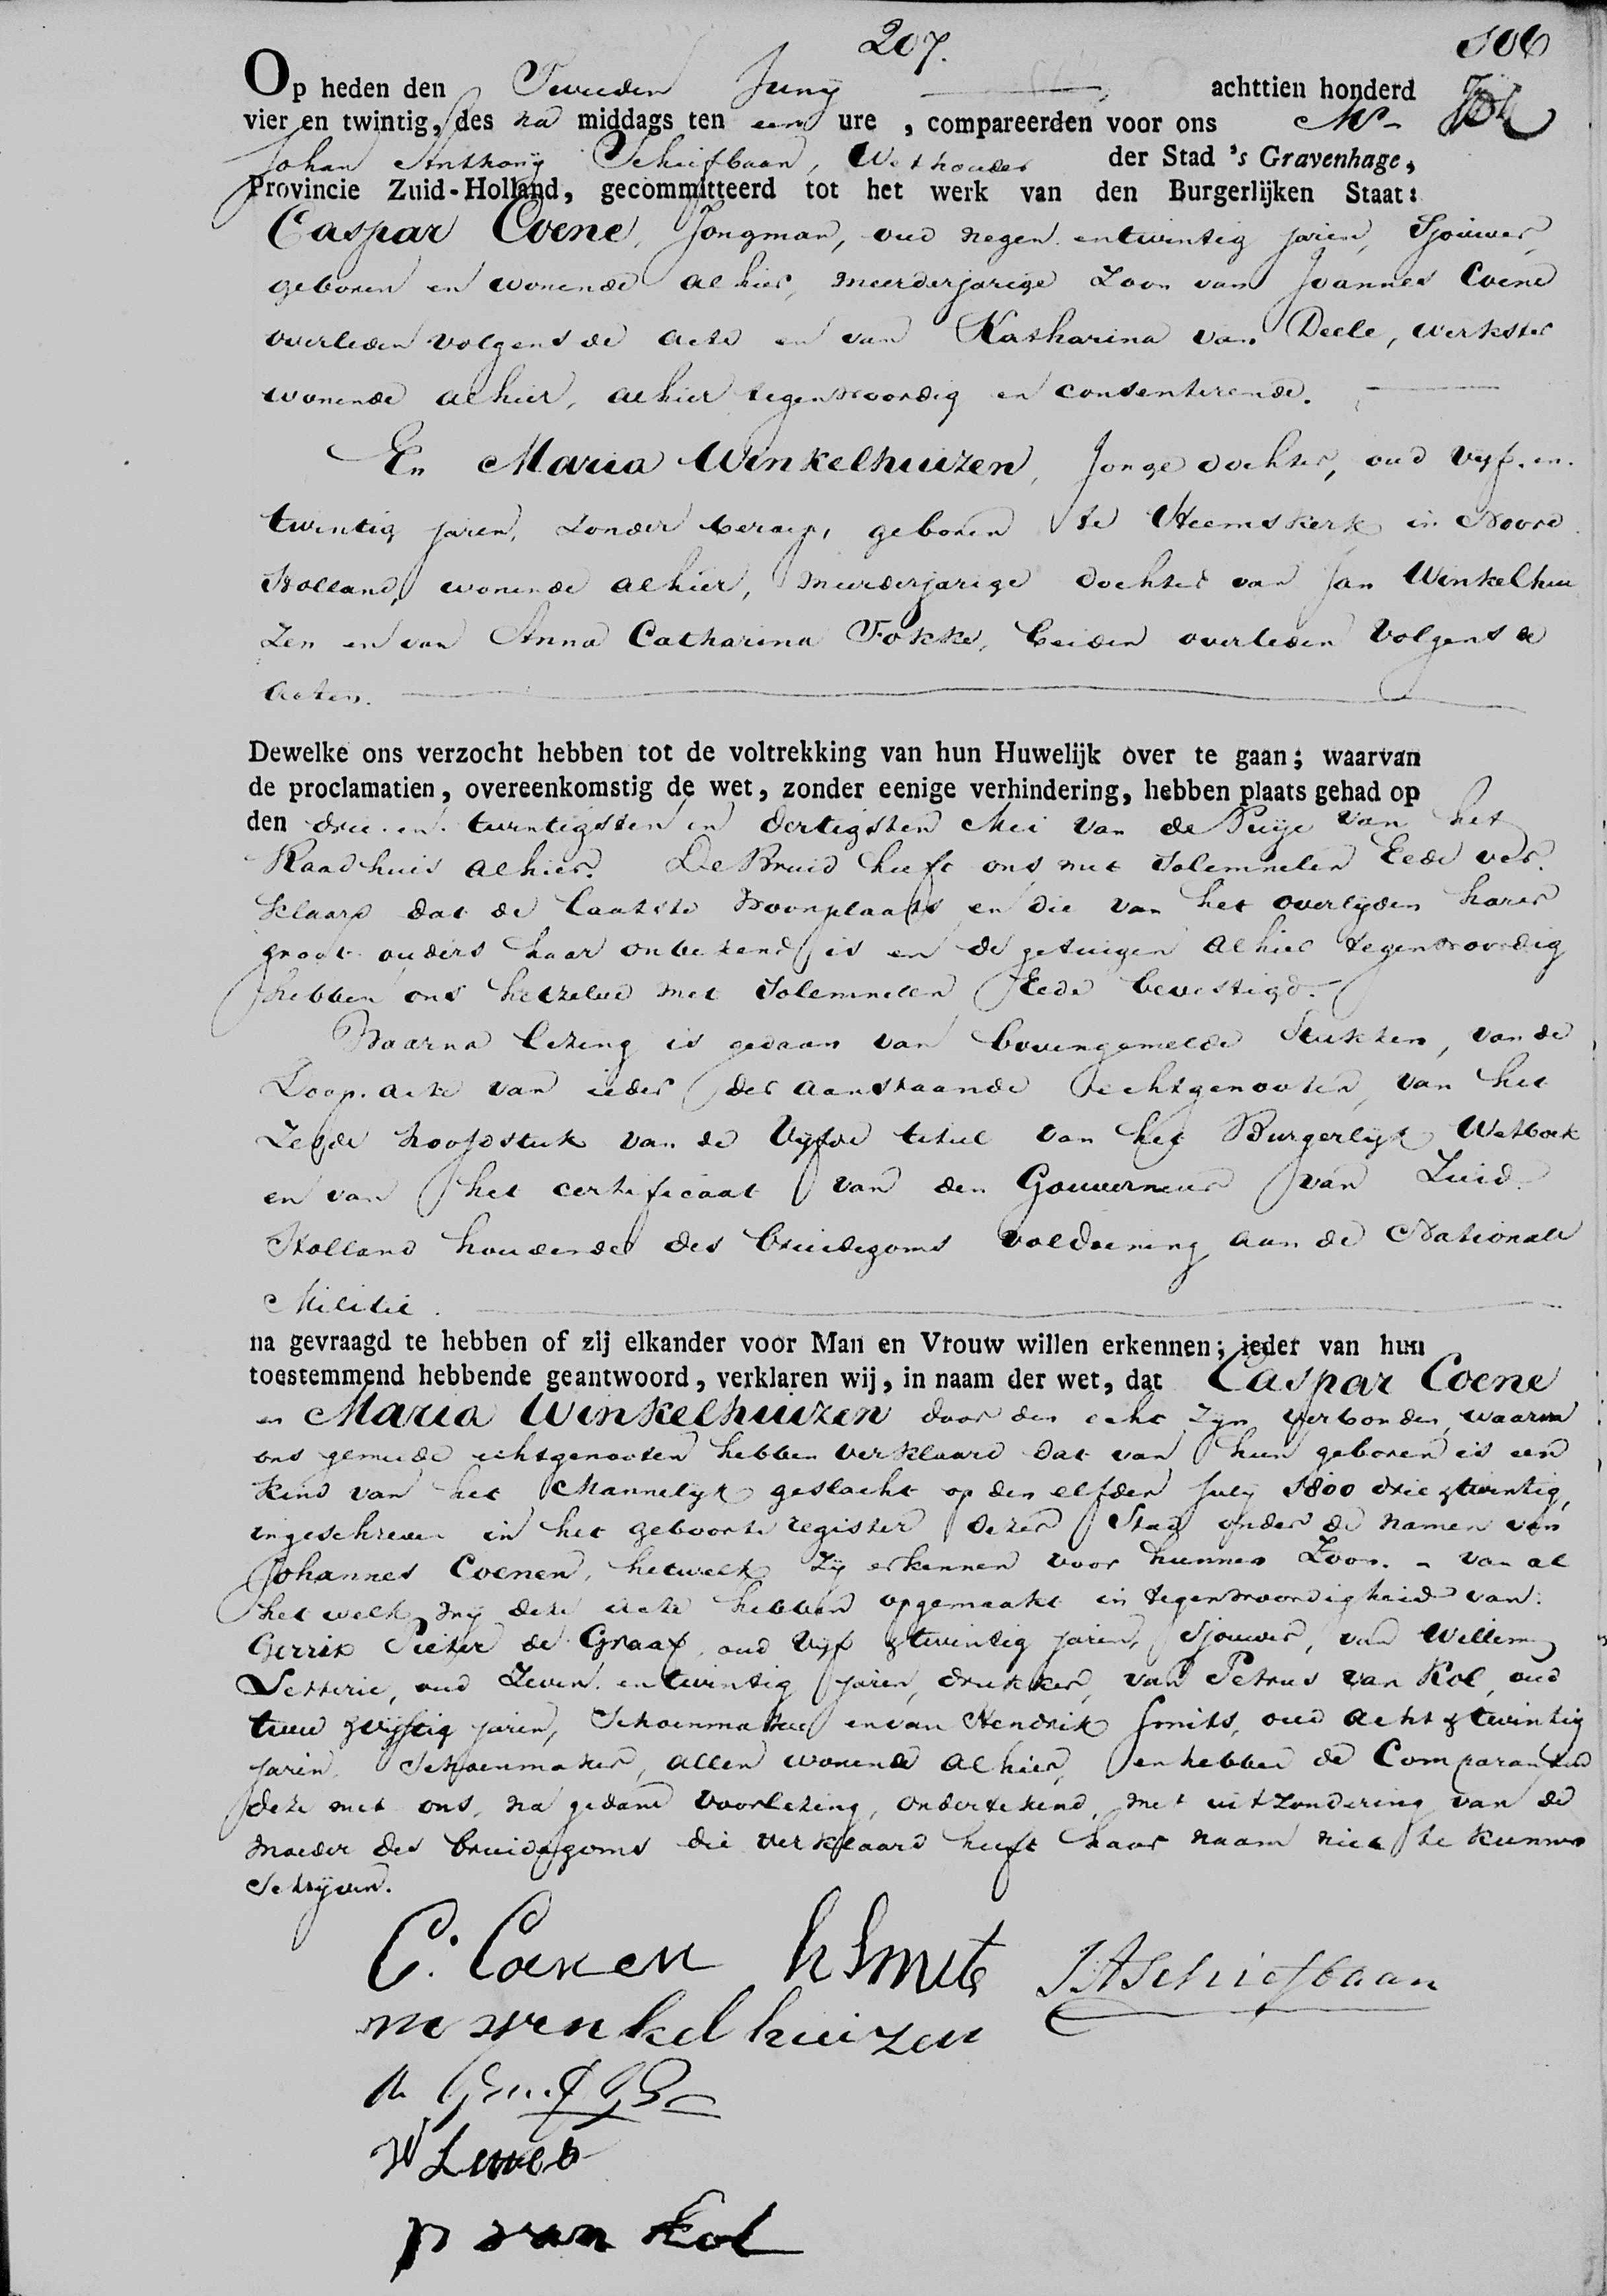 207.
106
Op heden den Tweeden Junij achttien honderd
vier en twintig, des na middags ten een ure , compareerden voor ons Mr
Johan Anthonij Schiefbaan, Wethouder der Stad 's Gravenhage,
Provincie Zuid-Holland, gecommitteerd tot het werk van den Burgerlijken Staat:
Caspar Coene, Jongman, oud negen en twintig jaren, Sjouwer,
geboren en wonende alhier, meerderjarige Zoon van Joannes Coene
overleden volgens de acte en van Katharina van Deele, werkster
wonende alhier, alhier tegenwoordig en consenterende.
En Maria Winkelhuizen, Jonge dochter, oud vyf. en.
twintig jaren, zonder beroep, geboren te Heemskerk in Noord
Holland, wonende alhier, meerderjarige dochter van Jan Winkelhui
zen en van Anna Catharina Fokke, beiden overleden volgens de
acten.
Dewelke ons verzocht hebben tot de voltrekking van hun Huwelijk over te gaan; waarvan
de proclamatien, overeenkomstig de wet, zonder eenige verhindering, hebben plaats gehad op
den drie. en. twintigsten en dertigsten Mei van de Puije van het
Raadhuis alhier. De Bruid heeft ons met Solemnelen Eede ver.
klaard dat de laatste Woonplaats en die van het overlyden harer
groot ouders haar onbekend is en de getuigen alhier tegenwoordig
hebben ons hetzelve met Solemnelen Eede bevestigd.
Waarna lezing is gedaan van bovengemelde Stukken, van de
Doop. acte van ieder der aanstaande echtgenooten, van het
Zesde hoofdstuk van de Vyfde titul van het Burgerlyk Wetboek
en van het certificaat van den Gouverneur van Zuid
Holland houdende des bruidegoms voldoening aan de Nationale
Militie.
na gevraagd te hebben of zij elkander voor Man en Vrouw willen erkennen; ieder van hun
toestemmend hebbende geantwoord, verklaren wij, in naam der wet, dat Caspar Coene
en Maria Winkelhuizen door den echt zyn verbonden, waarna
ons gemelde echtgenooten hebben verklaard dat van hun geboren is een
kind van het Mannelyk geslacht op den elfden July 1800 drie & twintig,
ingeschreven in het geboorte register dezer Stad onder de namen van
Johannes Coenen, hetwelk zy erkennen voor hunnen Zoon. - van al
het welk wy deze acte hebben opgemaakt in tegenwoordigheid van:
Gerrit Pieter de Graaf, oud vyf & twintig jaren, Sjouwer, van Willem
oud Zeven. en twintig jaren, drukker, van Petrus van Kol, oud
twee & vyftig jaren, Schoenmaker en van Hendrik Smits, oud acht & twintig
jaren, Schoenmaker, allen wonende alhier, en hebben de Comparanten
deze met ons, na gedane voorlezing, ondertekend, met uitzondering van de
moeder des bruidegoms die verklaard heeft haar naam niet te kunnen
Schryven.
C. Coenen h Smits J A Schiefbaan
m wenkel huizen
P van Kol